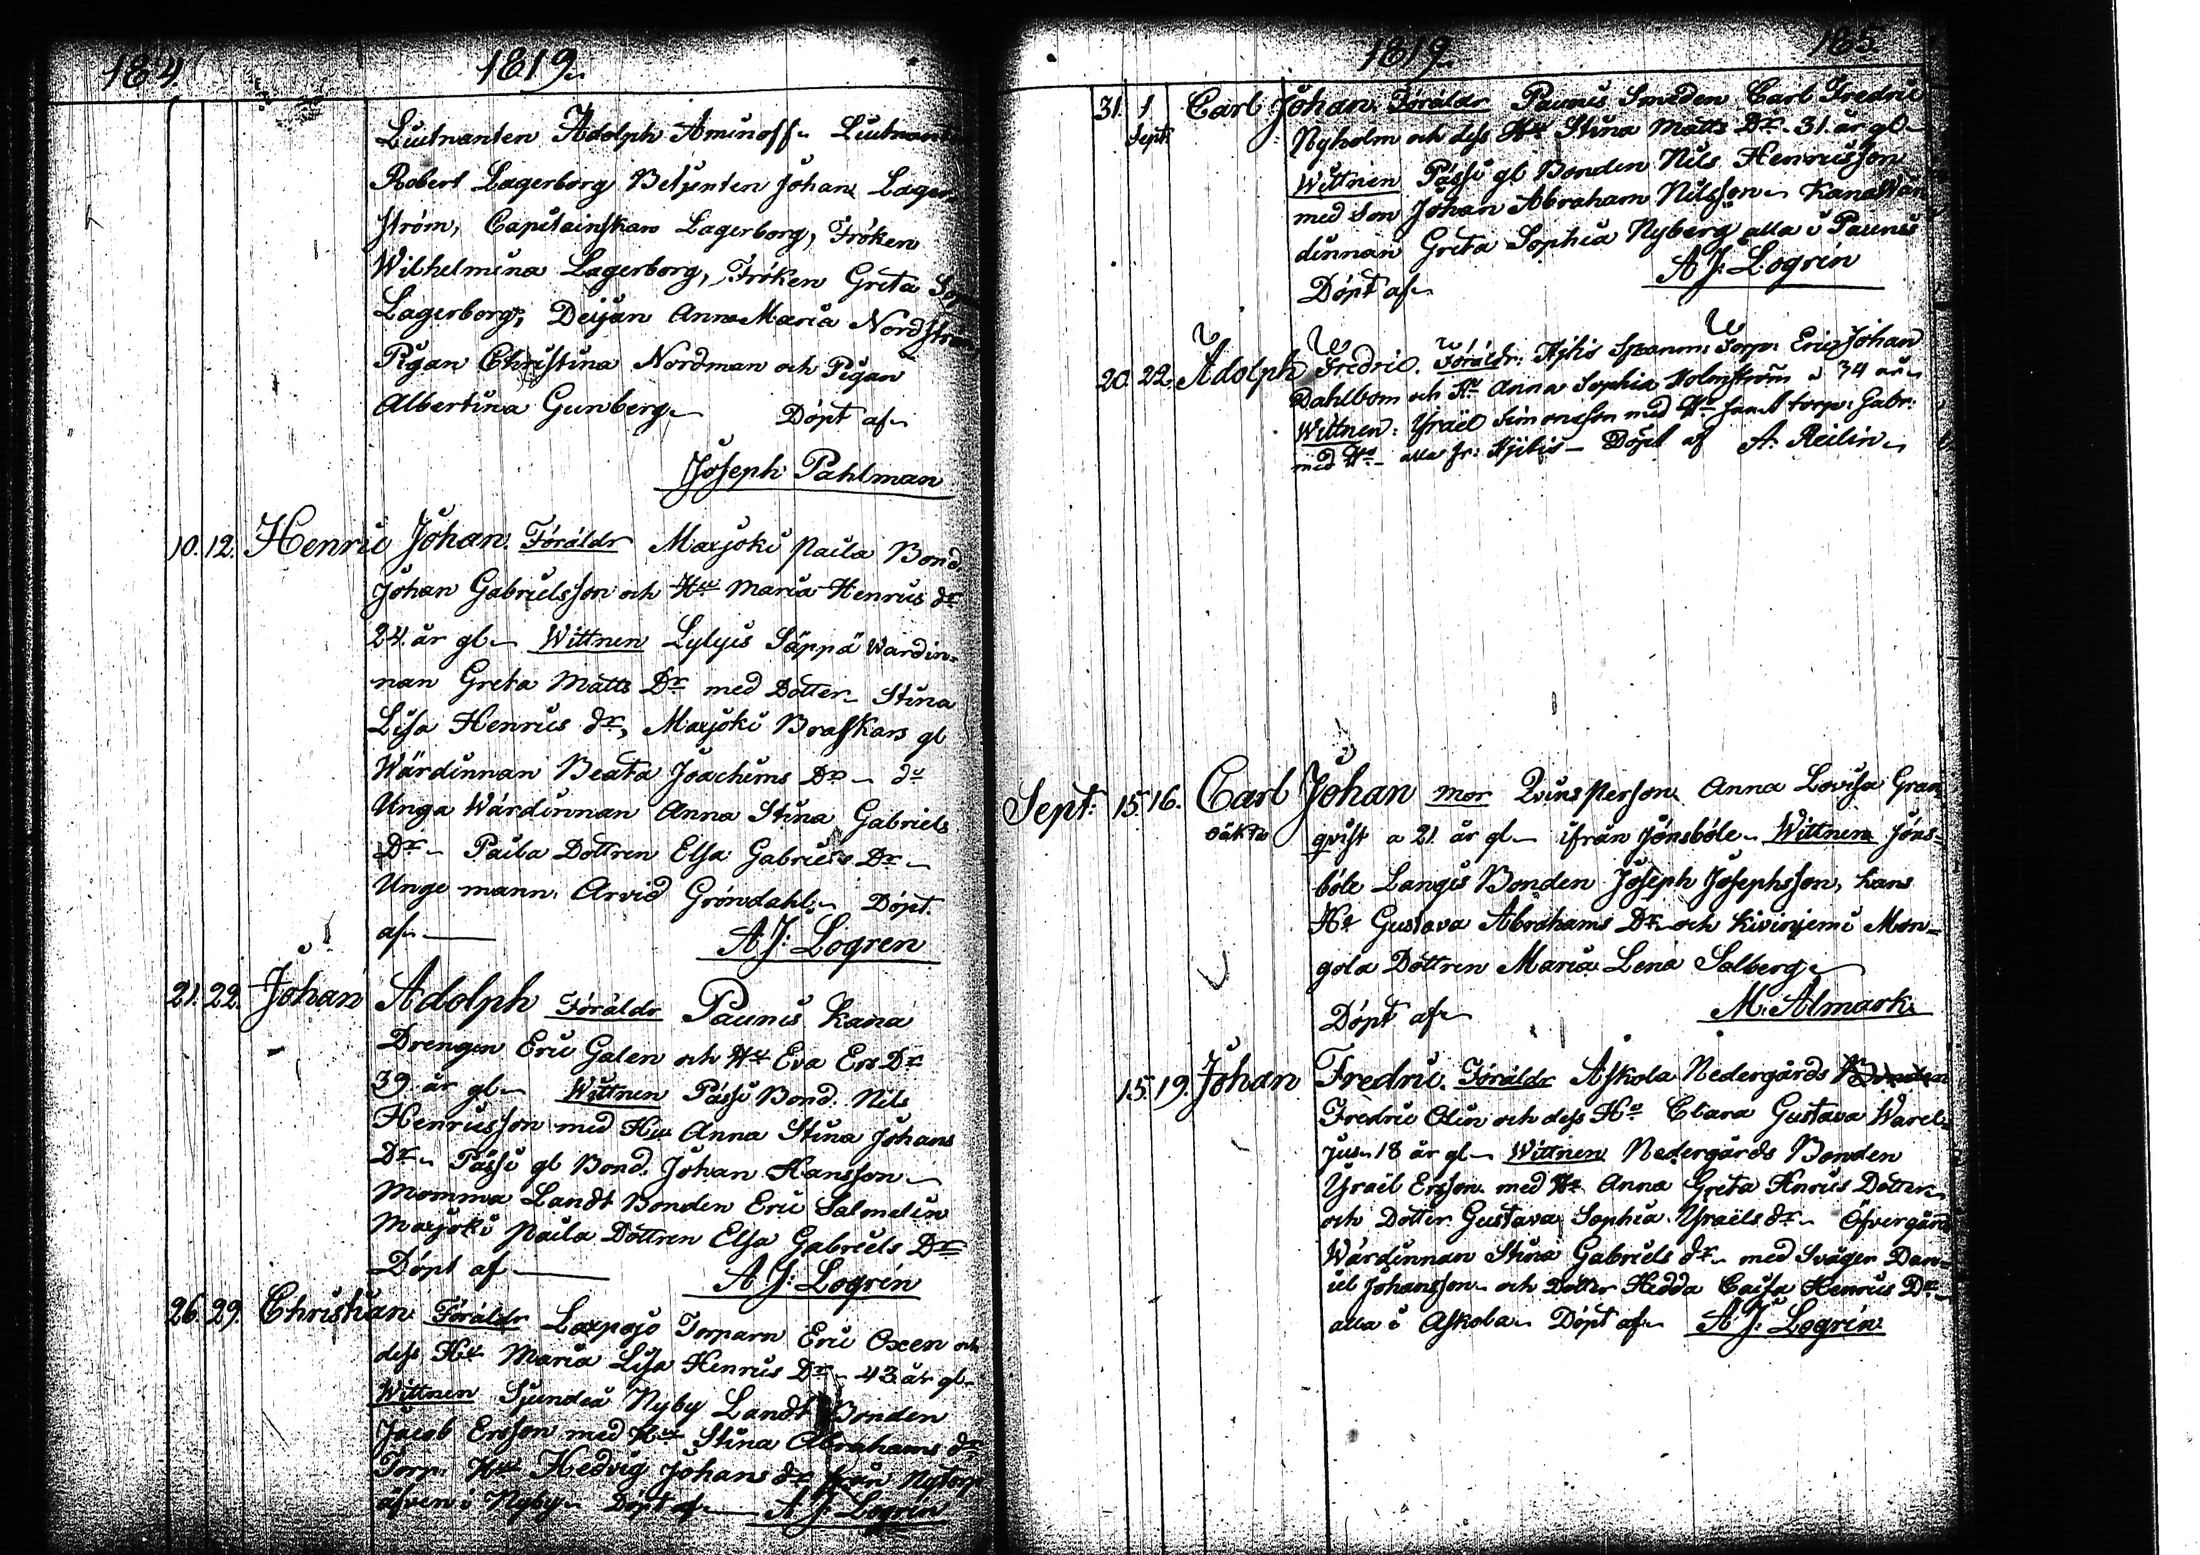 184.
1819.
Liutnanten Adolph Aminoff Liutnan
Robert Lagerborg Betjenten Johan Lager
ström, Capitainskan Lagerborg, Fröken
Wilhelmina Lagerborg, Fröken Greta
Lagerborg, Dejan Anna Maria Nordström
Pigan Christina Nordman och Pigan
Albertina Gunberg Döpt af
Joseph Pahlman
10. 12. Henric Johan. Föräldr Marjoki Paila Bond.
Johan Gabrielsson och Hu Maria Henrics dr
24. år gl Wittnen Lylyis Säppä Wärdin=
nan Greta Matts Dr med Dotter Stina
Lisa Henrics dr, Marjoki Braskars gl
Wärdinnan Beata Joachims Dr du
Unga Wärdinnan Anna Stina Gabriels
Dr Paila Dottren Elsa Gabriels Dr
Unge mann Arvid Gröndahl Döpt
af
A J: Logren
21. 22. Johan Adolph Föräldr Paunis Kana
Drengen Eric Galen och Hu Eva Ers Dr
39. år gl Wittnen Pässi Bond. Nils
Henricsson med Hu Anna Stina Johans
Dr Pässi gl Bond. Johan Hansson
Momma Landt Bonden Eric Salmelin
Marjoki Paila Dottren Elsa Gabriels Dr
Döpt af A J: Logrén
26. 29. Christian Föräldr Laxpojo Torparn Eric Oxen och
dess Hu Maria Lisa Henrics Dr 43 år gl
Wittnen Sjundeå Nyby Landt Bonden
Jacob Ersson med Hu Stina Abrahams dr
Torp. Hu Hedvig Johans dr från Nytorp
äfven i Nyby Döpt af A J Logrén
1819.
185
31. 1 Sept: Carl Johan. Föräldr Paunis Smeden Carl Fredric
Nyholm och dess Hu Stina Matts Dr 31. år gl
Wittnen Pässi gl Bonden Nils Henricsson
med Son Johan Abraham Nilsson Kana Wär
dinnan Greta Sophia Nyberg alla i Paunis
Döpt af A J: Logrén
20. 22. Adolph Fredric. Föräldr: Hjitis Torp: Eric Johan
Dahlbom och Hu Anna Sophia Holmström a 34 år
Wittnen: Ysraël Simonsson med Hu samt torp: Gabr:
med Hu alla fr: Hjitis Döpt af A. Reilin
Sept: 15. 16. Carl Johan mor Qvinsperson Anna Lovisa Gran
oäkta qvist a 21 år gl ifrån Jönsböle Wittnen Jöns=
böle Langis Bonden Joseph Josephsson, hans
Hu Gustava Abrahams Dr och Kivinjemi Mon=
gola Dottren Maria Lena Salberg
Döpt af M. Almark.
15. 19. Johan Fredric. Föräldr Askola Nedergårds Bonden
Fredric Olin och dess Hu Clara Gustava Warel=
jus 18 år gl Wittnen Nedergårds Bonden
Ysraël Ersson med Hu Anna Greta Henrics Dotter
och Dotter Gustava Sophia Ysraëls dr Öfvergårds
Wärdinnan Stina Gabriels dr med Svåger Dan=
iel Johansson och Dotter Hedda Caisa Henrics Dr
alla i Askola Döpt af A J: Logrén